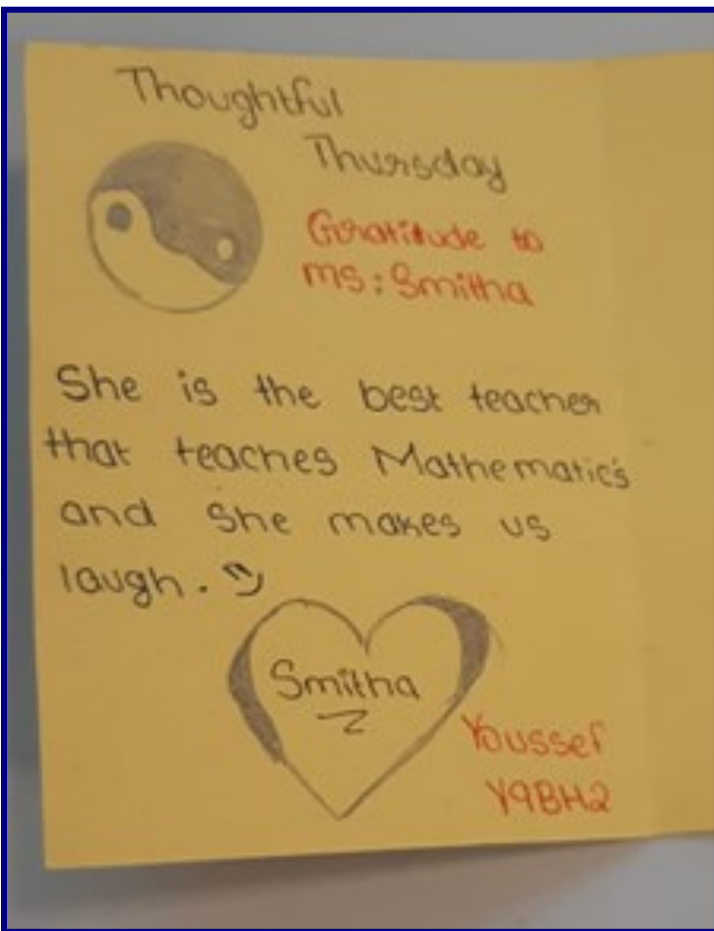 Thoughtful
Thursday
Gratitude to
ms: Smitha
She is the best teacher
that teaches Mathematics
and she makes us
laugh. :)
Smitha
Youssef
Y9BH2